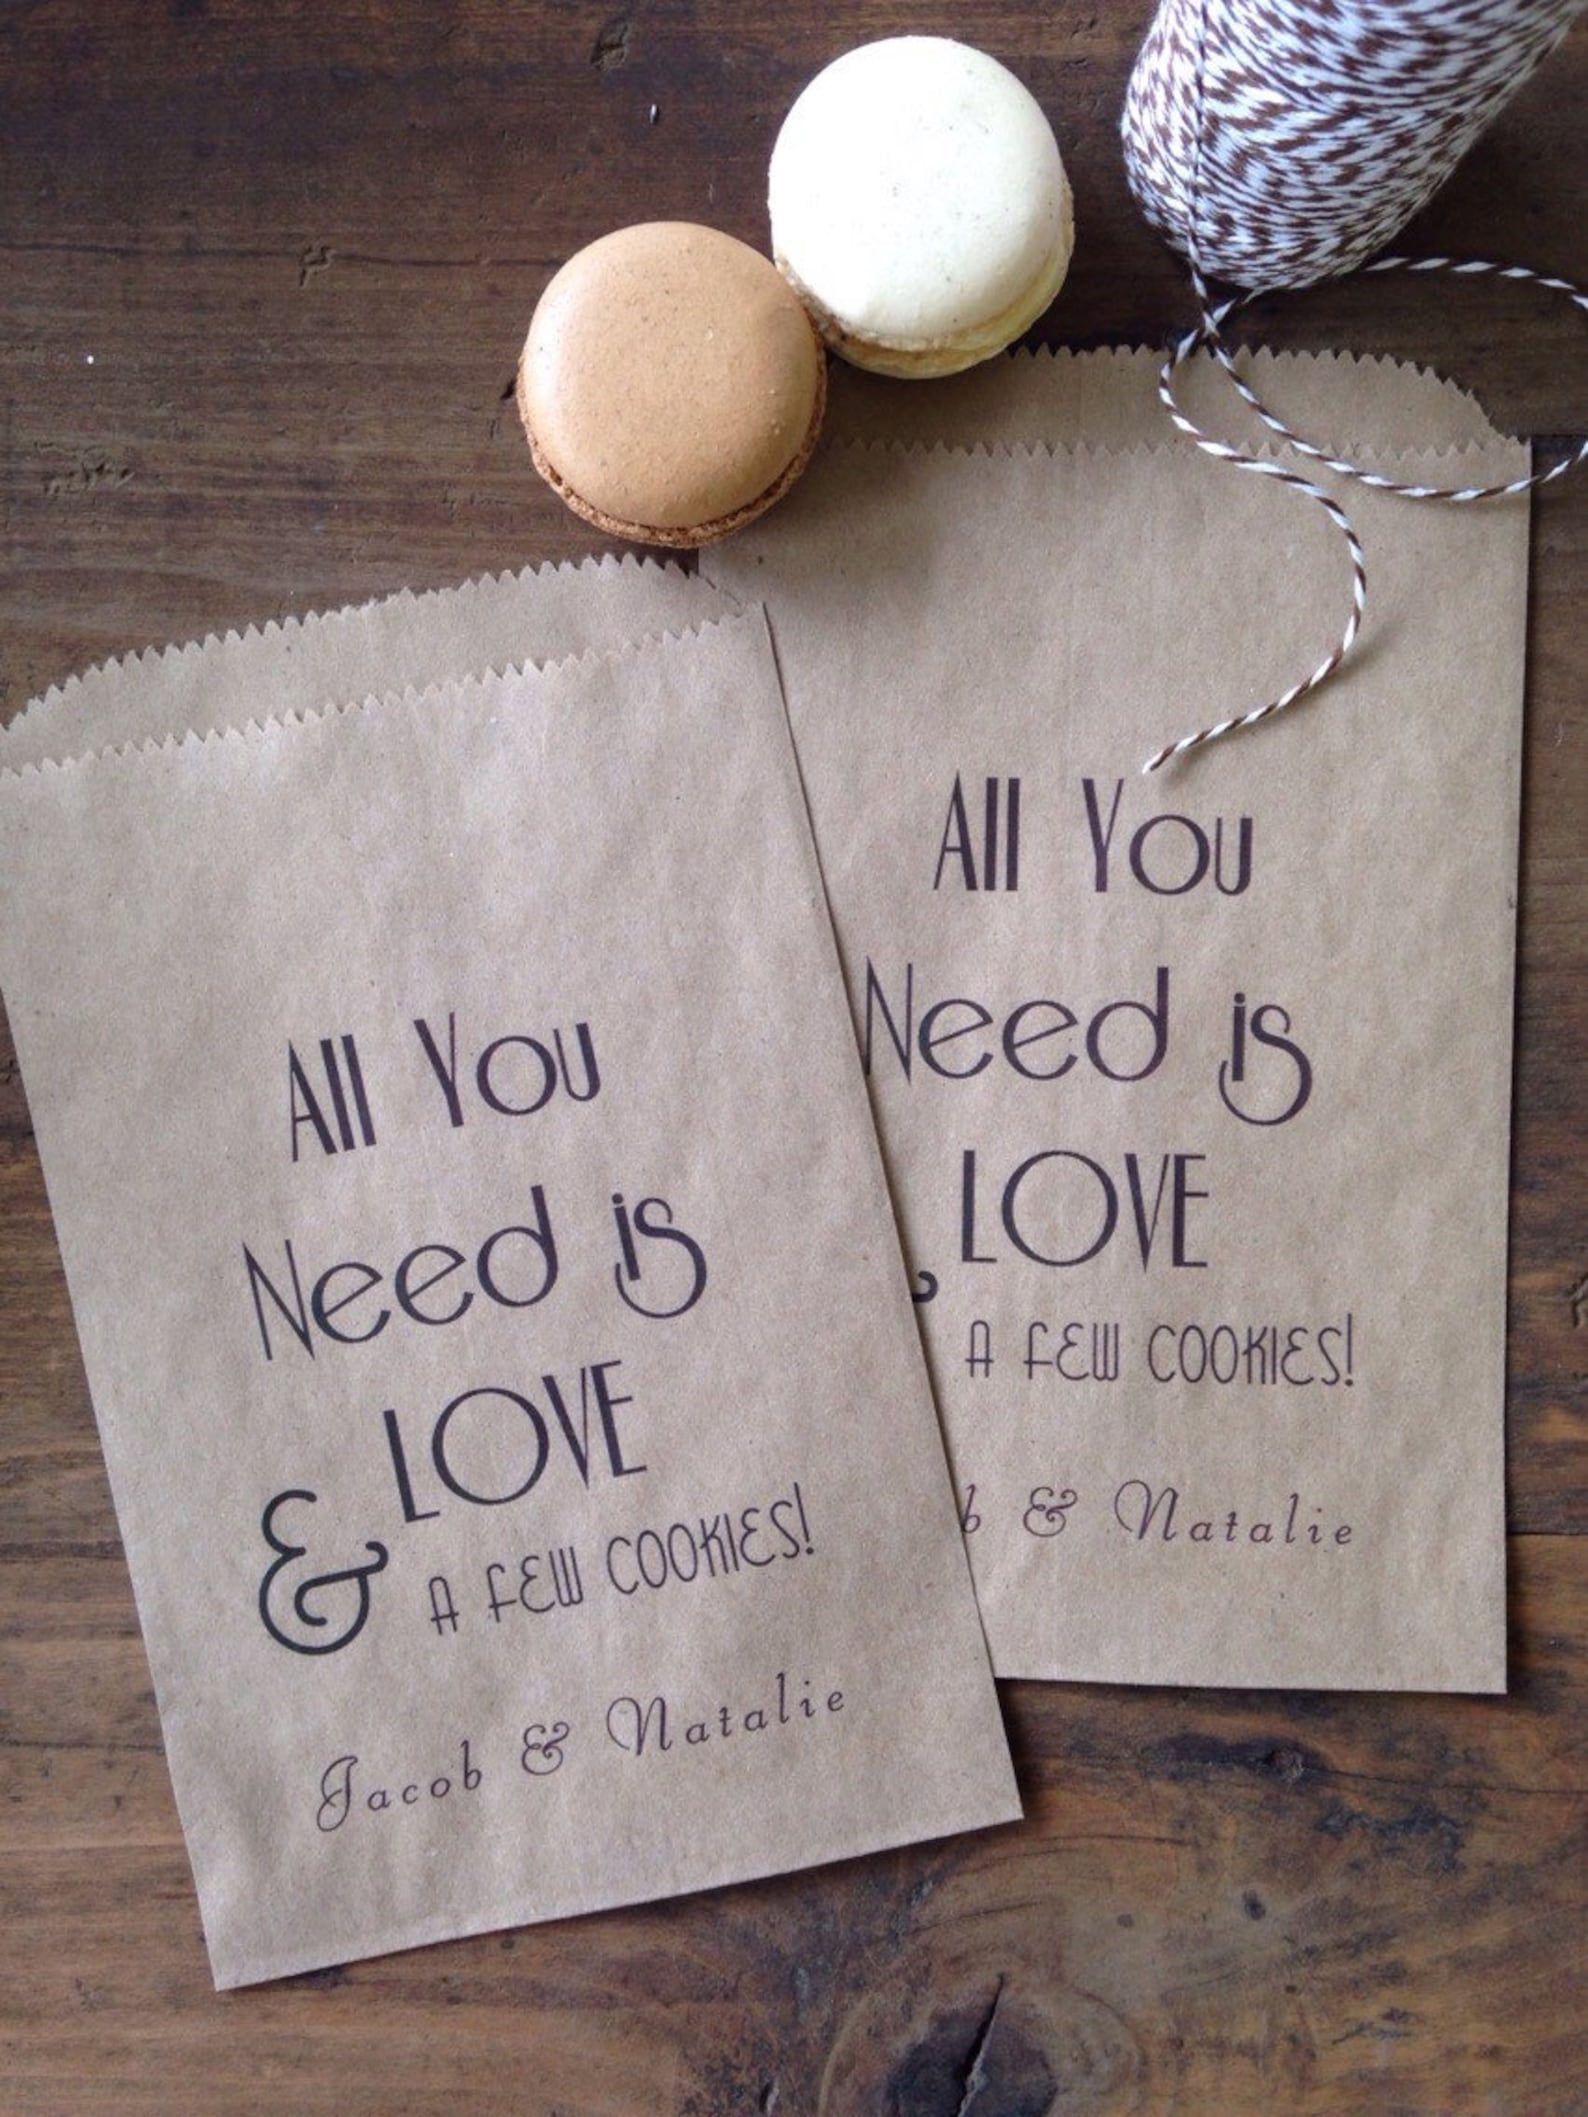 All You
Need is
LOVE
& A FEW COOKIES!
Jacob & Natalie
All You
Need is
LOVE
A FEW COOKIES!
b & Natalie